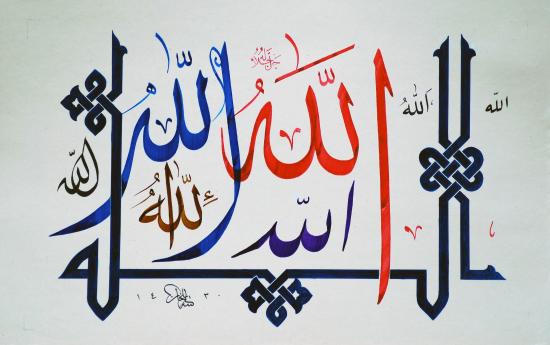 جل جلاله
الله
الله
الله
الله
الله
الله
الله
الله
١٤ ٣٠